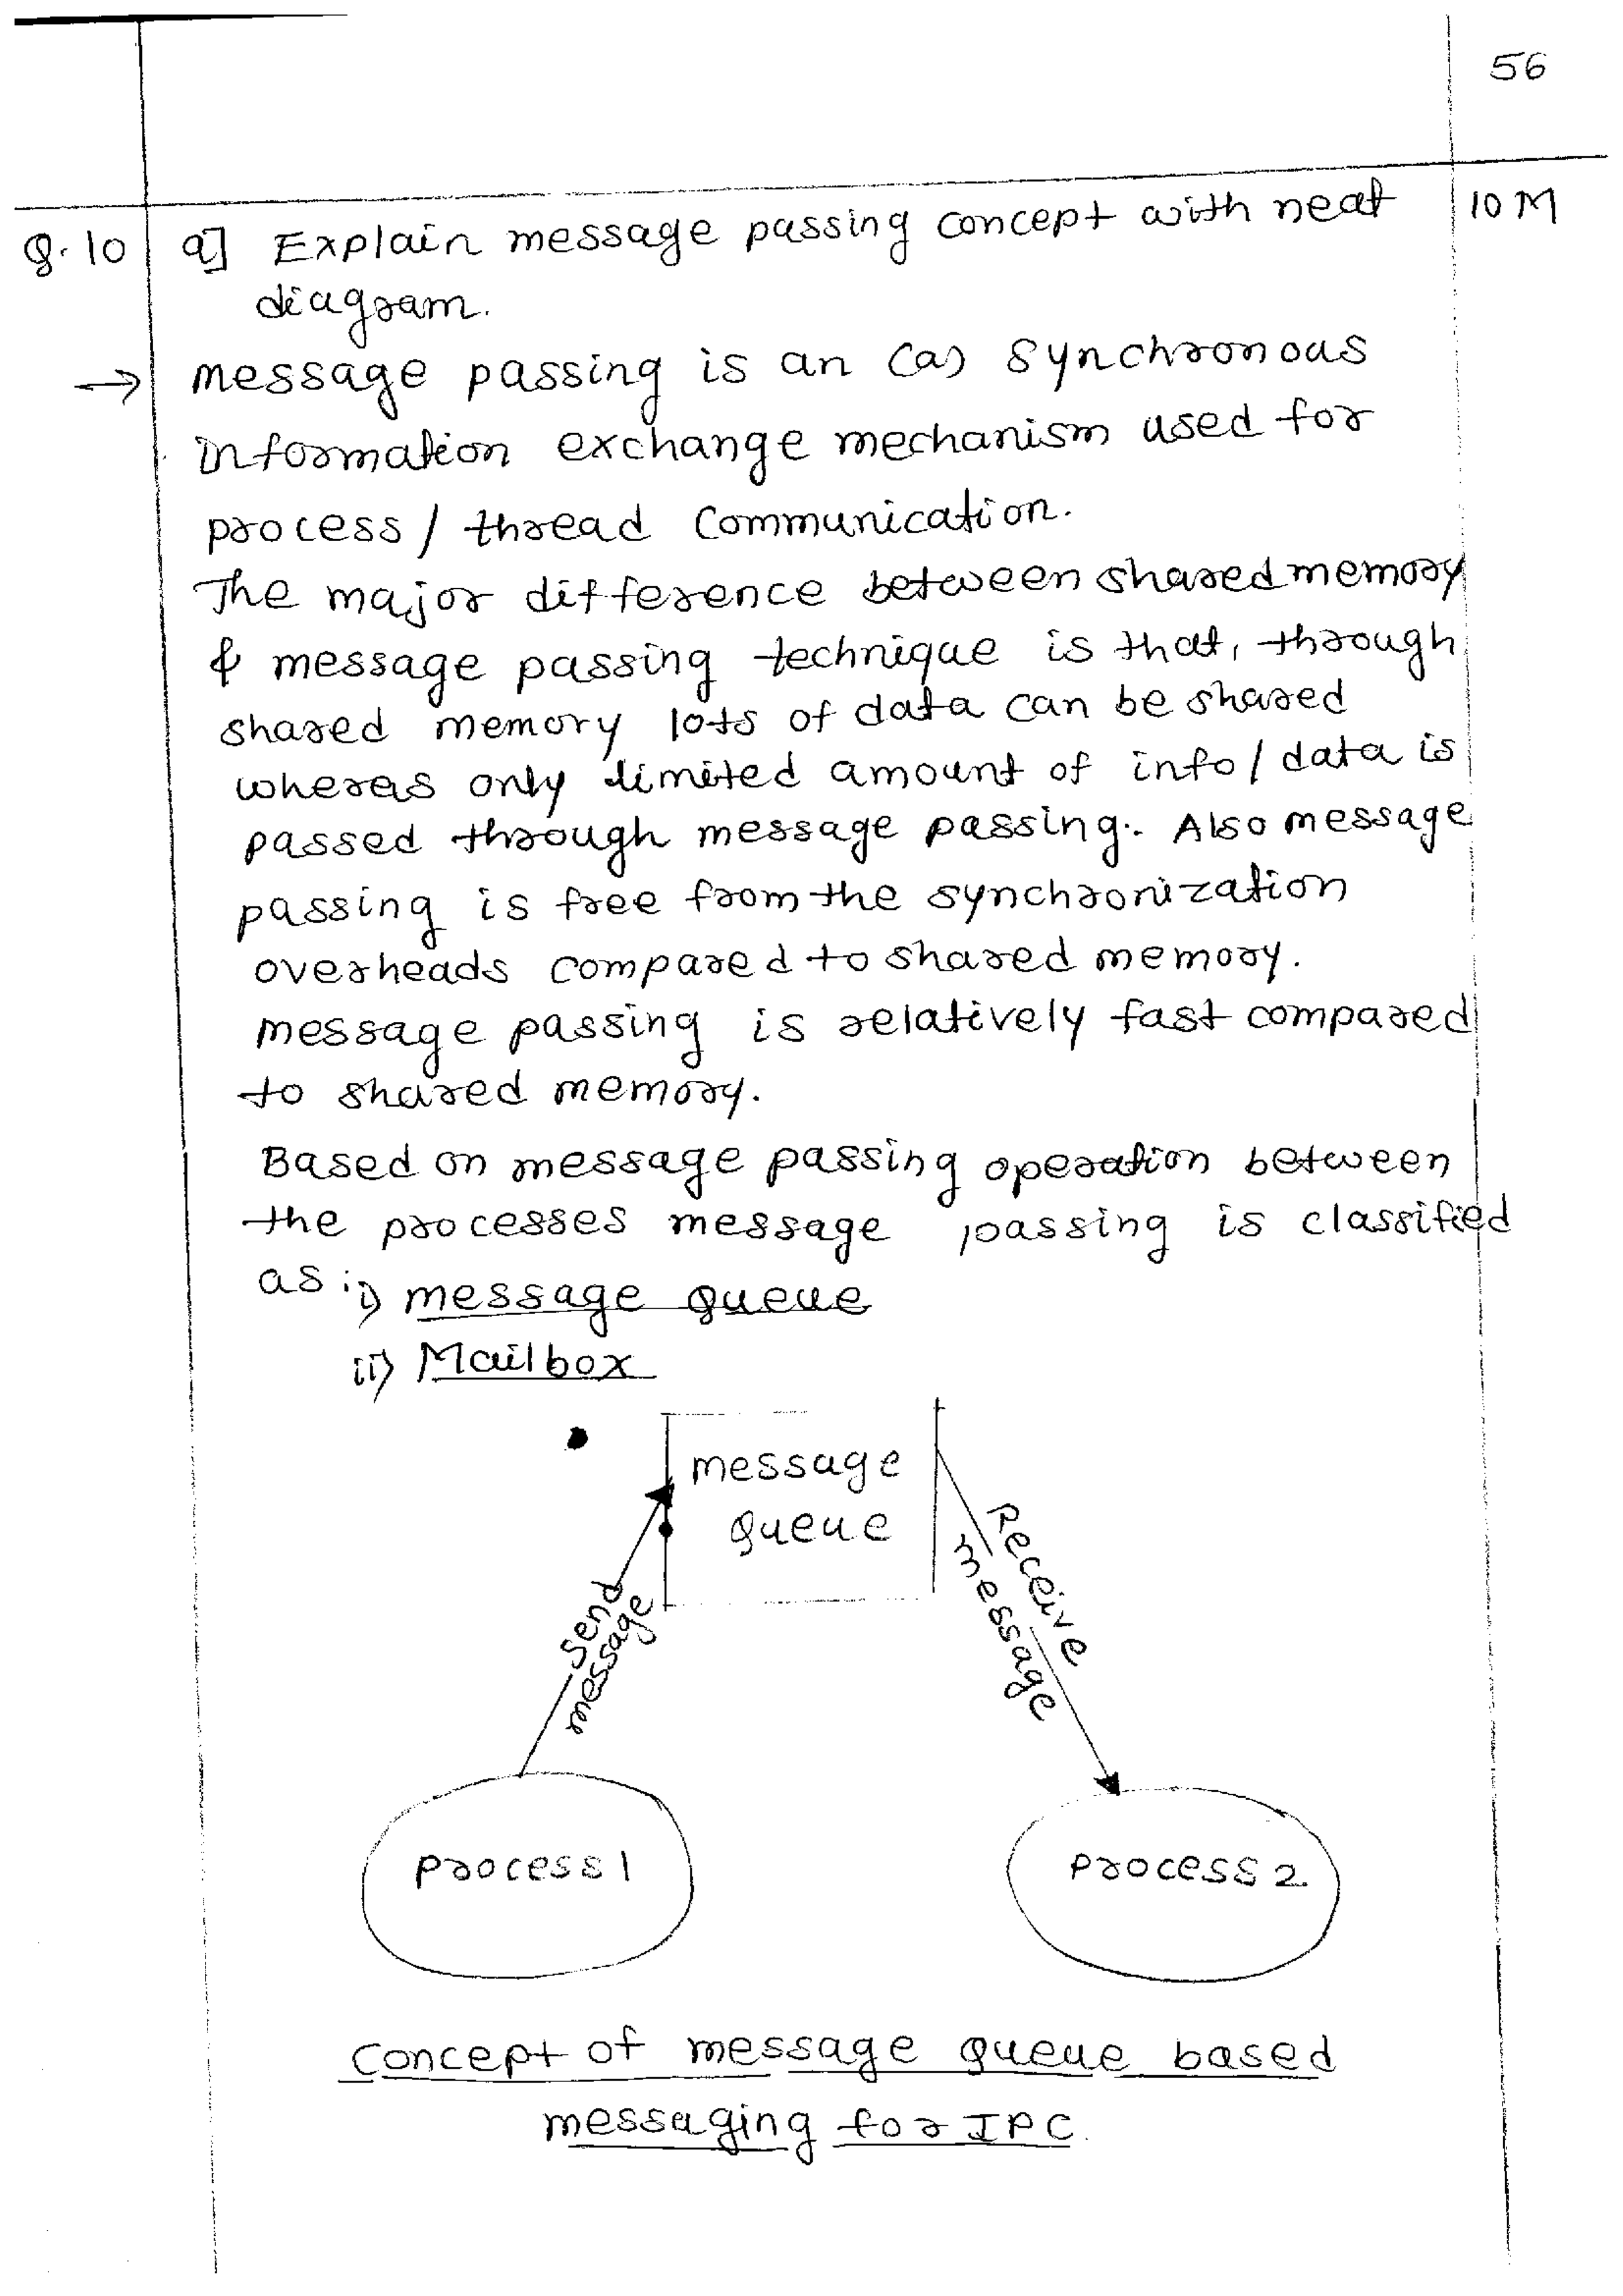 56
Q.10 a] Explain message passing concept with neat 10 M
diagram.
→ message passing is an (a) synchronous
Information exchange mechanism used for
process / thread Communication.
The major difference between shared memory
& message passing technique is that, through
shared memory lots of data can be shared
wheras only limited amount of info / data is
passed through message passing. Also message
passing is free from the synchronization
overheads compared to shared memory.
message passing is relatively fast compared
to shared memory.
Based on message passing operation between
the processes message passing is classified
as : i) message queue
ii) Mailbox
message
queue
Send
message
Receive
message
process 1
process 2
Concept of message queue based
messaging for IPC.